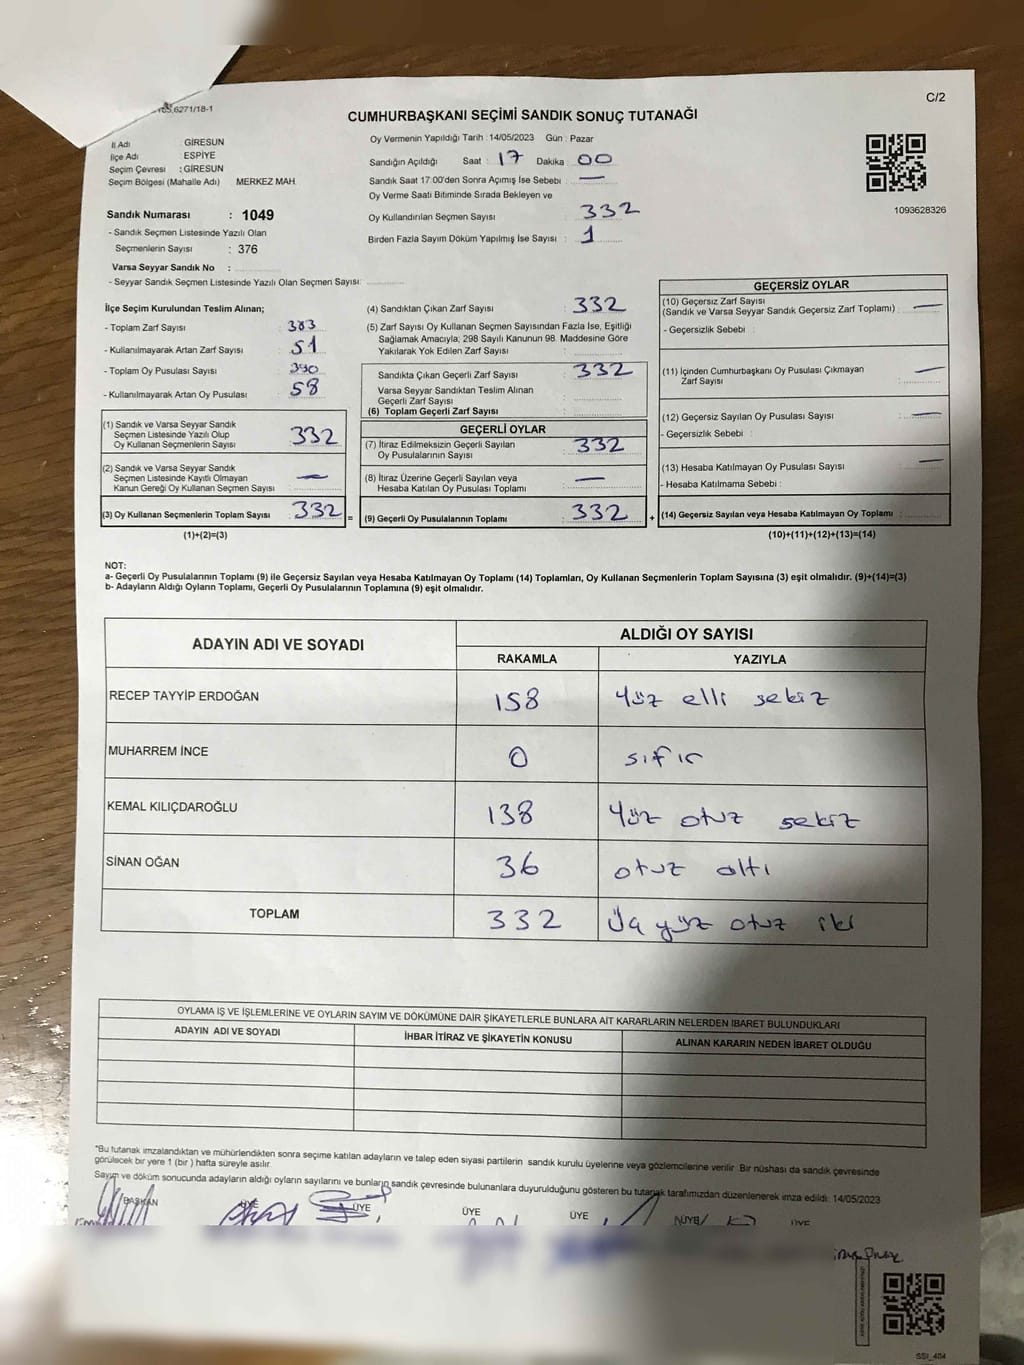 6271/18-1
C/2
CUMHURBAŞKANI SEÇİMİ SANDIK SONUÇ TUTANAĞI
İl Adı GİRESUN
İlçe Adı : ESPİYE
Seçim Çevresi : GİRESUN
Seçim Bölgesi (Mahalle Adı) MERKEZ MAH.
Sandık Numarası : 1049
- Sandık Seçmen Listesinde Yazılı Olan
Seçmenlerin Sayısı : 376
Varsa Seyyar Sandık No :
- Seyyar Sandık Seçmen Listesinde Yazılı Olan Seçmen Sayısı:
Oy Vermenin Yapıldığı Tarih : 14/05/2023 Gün : Pazar
Sandığın Açıldığı Saat : 17 Dakika 00
Sandık Saat 17:00'den Sonra Açımış İse Sebebi : —
Oy Verme Saati Bitiminde Sırada Bekleyen ve
Oy Kullandırılan Seçmen Sayısı : 332
Birden Fazla Sayım Döküm Yapılmış İse Sayısı : 1
1093628326
İlçe Seçim Kurulundan Teslim Alınan;
- Toplam Zarf Sayısı : 383
- Kullanılmayarak Artan Zarf Sayısı : 51
- Toplam Oy Pusulası Sayısı : 390
- Kullanılmayarak Artan Oy Pusulası : 58
(1) Sandık ve Varsa Seyyar Sandık
Seçmen Listesinde Yazılı Olup
Oy Kullanan Seçmenlerin Sayısı : 332
(2) Sandık ve Varsa Seyyar Sandık
Seçmen Listesinde Kayıtlı Olmayan
Kanun Gereği Oy Kullanan Seçmen Sayısı : —
(3) Oy Kullanan Seçmenlerin Toplam Sayısı : 332 =
(1)+(2)=(3)
(4) Sandıktan Çıkan Zarf Sayısı : 332
(5) Zarf Sayısı Oy Kullanan Seçmen Sayısından Fazla İse, Eşitliği
Sağlamak Amacıyla; 298 Sayılı Kanunun 98. Maddesine Göre
Yakılarak Yok Edilen Zarf Sayısı :
Sandıkta Çıkan Geçerli Zarf Sayısı : 332
Varsa Seyyar Sandıktan Teslim Alınan
Geçerli Zarf Sayısı :
(6) Toplam Geçerli Zarf Sayısı :
GEÇERLİ OYLAR
(7) İtiraz Edilmeksizin Geçerli Sayılan
Oy Pusulalarının Sayısı : 332
(8) İtiraz Üzerine Geçerli Sayılan veya
Hesaba Katılan Oy Pusulası Toplamı : —
(9) Geçerli Oy Pusulalarının Toplamı : 332 +
GEÇERSİZ OYLAR
(10) Geçersiz Zarf Sayısı
(Sandık ve Varsa Seyyar Sandık Geçersiz Zarf Toplamı) : —
- Geçersizlik Sebebi :
(11) İçinden Cumhurbaşkanı Oy Pusulası Çıkmayan
Zarf Sayısı : —
(12) Geçersiz Sayılan Oy Pusulası Sayısı : —
- Geçersizlik Sebebi :
(13) Hesaba Katılmayan Oy Pusulası Sayısı : —
- Hesaba Katılmama Sebebi :
(14) Geçersiz Sayılan veya Hesaba Katılmayan Oy Toplamı :
(10)+(11)+(12)+(13)=(14)
NOT:
a- Geçerli Oy Pusulalarının Toplamı (9) ile Geçersiz Sayılan veya Hesaba Katılmayan Oy Toplamı (14) Toplamları, Oy Kullanan Seçmenlerin Toplam Sayısına (3) eşit olmalıdır. (9)+(14)=(3)
b- Adayların Aldığı Oyların Toplamı, Geçerli Oy Pusulalarının Toplamına (9) eşit olmalıdır.
ADAYIN ADI VE SOYADI ALDIĞI OY SAYISI
RAKAMLA YAZIYLA
RECEP TAYYİP ERDOĞAN 158 Yüz elli sekiz
MUHARREM İNCE 0 sıfır
KEMAL KILIÇDAROĞLU 138 Yüz otuz sekiz
SİNAN OĞAN 36 otuz altı
TOPLAM 332 Üç yüz otuz iki
OYLAMA İŞ VE İŞLEMLERİNE VE OYLARIN SAYIM VE DÖKÜMÜNE DAİR ŞİKAYETLERLE BUNLARA AİT KARARLARIN NELERDEN İBARET BULUNDUKLARI
ADAYIN ADI VE SOYADI İHBAR İTİRAZ VE ŞİKAYETİN KONUSU ALINAN KARARIN NEDEN İBARET OLDUĞU
*Bu tutanak imzalandıktan ve mühürlendikten sonra seçime katılan adayların ve talep eden siyasi partilerin sandık kurulu üyelerine veya gözlemcilerine verilir. Bir nüshası da sandık çevresinde
görülecek bir yere 1 (bir ) hafta süreyle asılır.
Sayım ve döküm sonucunda adayların aldığı oyların sayılarını ve bunların sandık çevresinde bulunanlara duyurulduğunu gösteren bu tutanak tarafımızdan düzenlenerek imza edildi. 14/05/2023
BAŞKAN ÜYE ÜYE ÜYE ÜYE ÜYE
SSİ_404